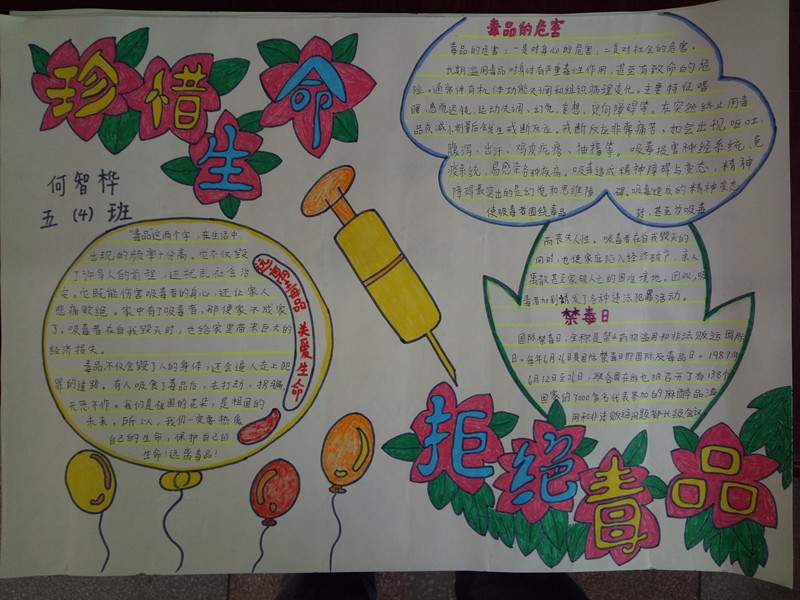 珍惜生命
何智桦
五 (4) 班
"毒品"这两个字,在生活中
出现的频率十分高。它不仅毁
了许多人的前程,还扰乱社会治
安。它既能伤害吸毒者的身心,还让家人
悲痛欲绝。家中有了吸毒者,那便家不成家
了。吸毒者在自我毁灭时,也给家里带来巨大的
经济损失。
毒品不仅会毁了人的身体,还会逼人走上犯
罪的道路。有人吸食了毒品后,去打劫、拐骗,
无恶不作。我们是祖国的花朵,是祖国的
未来。所以,我们一定要热爱
自己的生命,保护自己的
生命!远离毒品!
远离毒品 关爱生命
毒品的危害
毒品的危害:一是对身心的危害,二是对社会的危害。
长期滥用毒品对身体有严重毒性作用,甚至有致命的危
险。通常伴有机体功能失调和组织病理变化。主要特征嗜
睡、感觉迟钝、运动失调、幻觉、妄想、定向障碍等。在突然终止用毒
品或减小剂量后会发生戒断反应。戒断反应非常痛苦,如会出现呕吐、
腹泻、出汗、鸡皮疙瘩、抽搐等。吸毒损害神经系统、免
疫系统,易感染各种疾病。吸毒造成精神障碍与变态,精神
障碍最突出的是幻觉和思维障碍。吸毒造成的精神变态
使吸毒者围绕毒品转,甚至为吸毒
而丧失人性。吸毒者在自我毁灭的
同时,也使家庭陷入经济破产、亲人
离散甚至家破人亡的困难境地。因此,吸
毒者加剧诱发了各种违法犯罪活动。
禁毒日
国际禁毒日,全称是禁止药物滥用和非法贩运国际
日。每年6月26日是国际禁毒日即国际反毒品日。1987年
6月12日至26日,联合国在维也纳召开了有138个
国家的3000多名代表参加的麻醉品滥
用和非法贩运问题部长级会议
拒绝毒品